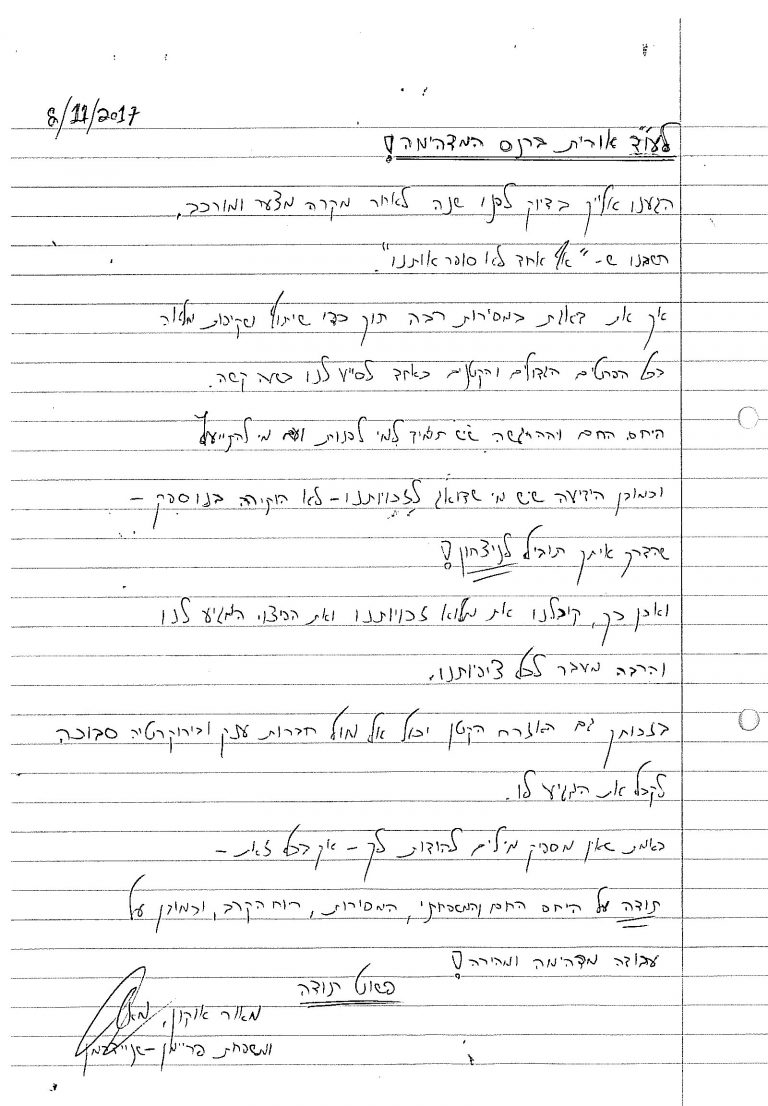 8/11/2017
לעו"ד אורית ברנס המדהימה!
הגענו אלייך בדיוק לפני שנה לאחר מקרה מצער ומורכב,
חשבנו ש- "אף אחד לא סופר אותנו".
אך את דאגת במסירות רבה תוך כדי שיתוף ושקיפות מלאה
בכל הפרטים הגדולים והקטנים כאחד לסייע לנו בשעה קשה.
היחס החם וההרגשה שיש תמיד למי לפנות ועם מי להתייעץ
וכמובן הידיעה שיש מי שדואג לזכויותנו - לא הותירה בנו ספק -
שהדרך איתך תוביל לניצחון!
ואכן כך, קיבלנו את מלוא זכויותנו ואת הפיצוי המגיע לנו
והרבה מעבר לכל ציפיותנו.
בזכותך גם האזרח הקטן יכול אל מול חברות ענק ובירוקרטיה סבוכה
לקבל את המגיע לו.
באמת שאין מספיק מילים להודות לך - אך בכל זאת -
תודה על היחס החם והמשפחתי, המסירות, רוח הקרב, וכמובן על
עבודה מדהימה ומהירה!
פשוט תודה
מאור אוקון,
ומשפחת פריימן-שניידרמן